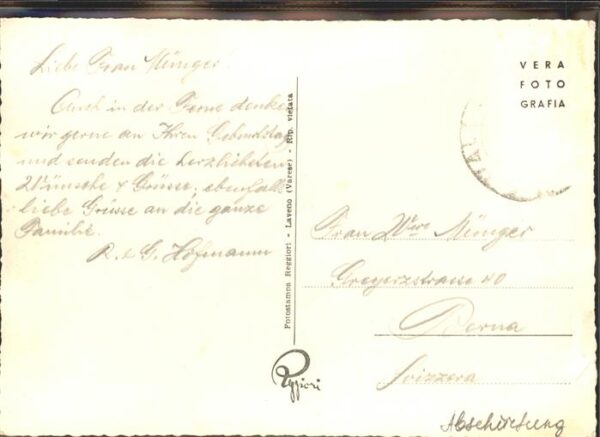 Liebe Frau Münger!
Auch in der Ferne denken
wir gerne an Ihren Geburtstag
und senden die herzlichsten
Wünsche & Grüsse, ebenfalls
liebe Grüsse an die ganze
Familie.
R. & G. Hofmann
Fotostampa Reggiori - Laveno (Varese) - Rip. vietata
Reggiori
VERA
FOTO
GRAFIA
Frau Wwe Münger
Greyerzstrasse 40
Berna
Svizzera